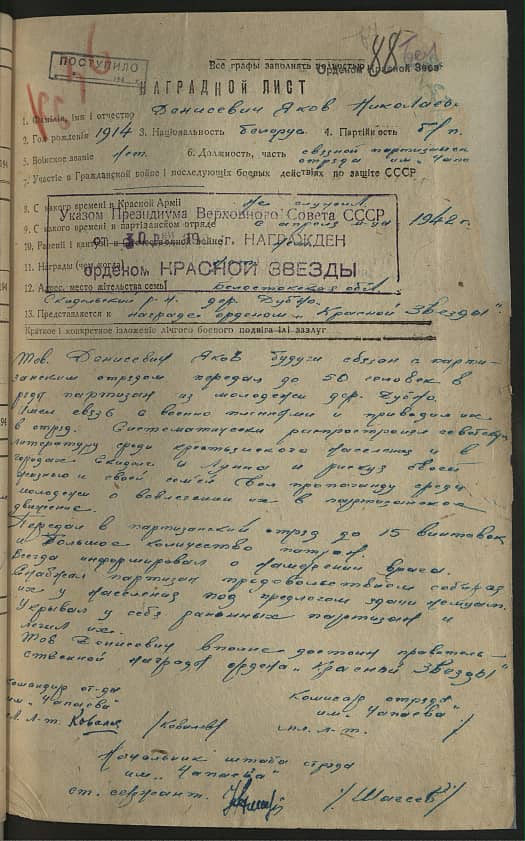 88
ПОСТУПИЛО
Все графы заполнять полностью
Орденом Красной Звез
НАГРАДНОЙ ЛИСТ
1. Фамилия, имя и отчество Данисевич Яков Николаев.
2. Год рождения 1914 3. Национальность белорус 4. Партийность б/п.
5. Воинское звание 6. Должность, часть связной партизанск
отряда им. Чапа
7. Участие в Гражданской войне и последующих боевых действиях по защите СССР
8. С какого времени в Красной Армии не служил
Указом Президиума Верховного Совета СССР
9. С какого времени в партизанском отряде с апреля м-ца 1942 г.
от 30 19 г. НАГРАЖДЕН
10. Ранен и контужен в отечественной войне
11. Награды (чем когда)
орденом КРАСНОЙ ЗВЕЗДЫ
12. Адрес, место жительства семьи Белостокская обл.
Скидельский р-н. дер. Дубно.
13. Представляется к награде орденом „Красной Звезды"
Краткое и конкретное изложение личного боевого подвига или заслуг
Тов. Данисевич Яков будучи связан с парти-
занским отрядом передал до 50 человек в
ряды партизан из молодежи дер. Дубно.
Имел связь с военно пленными и приводил их
в отряд. Систематически распространял советскую
литературу среди крестьянского населения и в
городах Скидель и Лунна и рискуя своей
жизнью и своей семьи вел пропаганду среди
молодежи о вовлечении их в партизанское
движение.
Передал в партизанский отряд до 15 винтовок
и большое количество патрон.
Всегда информировал о намерении врага.
Снабжал партизан продовольствием собирая
их у населения под предлогом здачи немцам.
Укрывал у себя раненных партизан и
лечил их.
Тов Данисевич вполне достоин правитель-
ственной награды ордена „Красной Звезды"
Командир от-да
им. „Чапаева"
Комиссар отряда
им. „Чапаева"
л-т. /Ковалев/
мл. л-т.
Начальник штаба отряда
им. „Чапаева"
ст. сержант.